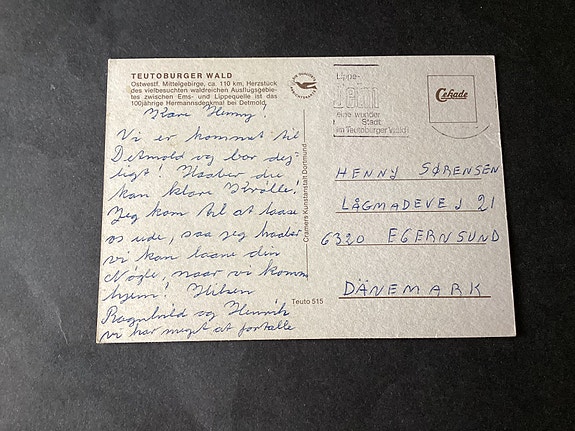 TEUTOBURGER WALD
Ostwestf. Mittelgebirge, ca. 110 km, Herzstück
des vielbesuchten waldreichen Ausflugsgebie-
tes zwischen Ems- und Lippequelle ist das
100jährige Hermannsdenkmal bei Detmold.
Kære Henny!
Vi er kommet til
Detmold og bor dej-
ligt! Haaber du
kan klare Krølle!
Jeg kom til at laase
os ude, saa jeg haaber
vi kan laane din
Nøgle, naar vi komm
hjem! Hilsen
Ragnhild og Henrik
vi har meget at fortælle
Cramers Kunstanstalt Dortmund
Teuto 515
Lippe-
eine wunder
Stadt
im Teutoburger Wald
Cekade
HENNY SØRENSEN
LÅGMADEVEJ 21
6320 EGERNSUND
DÄNEMARK